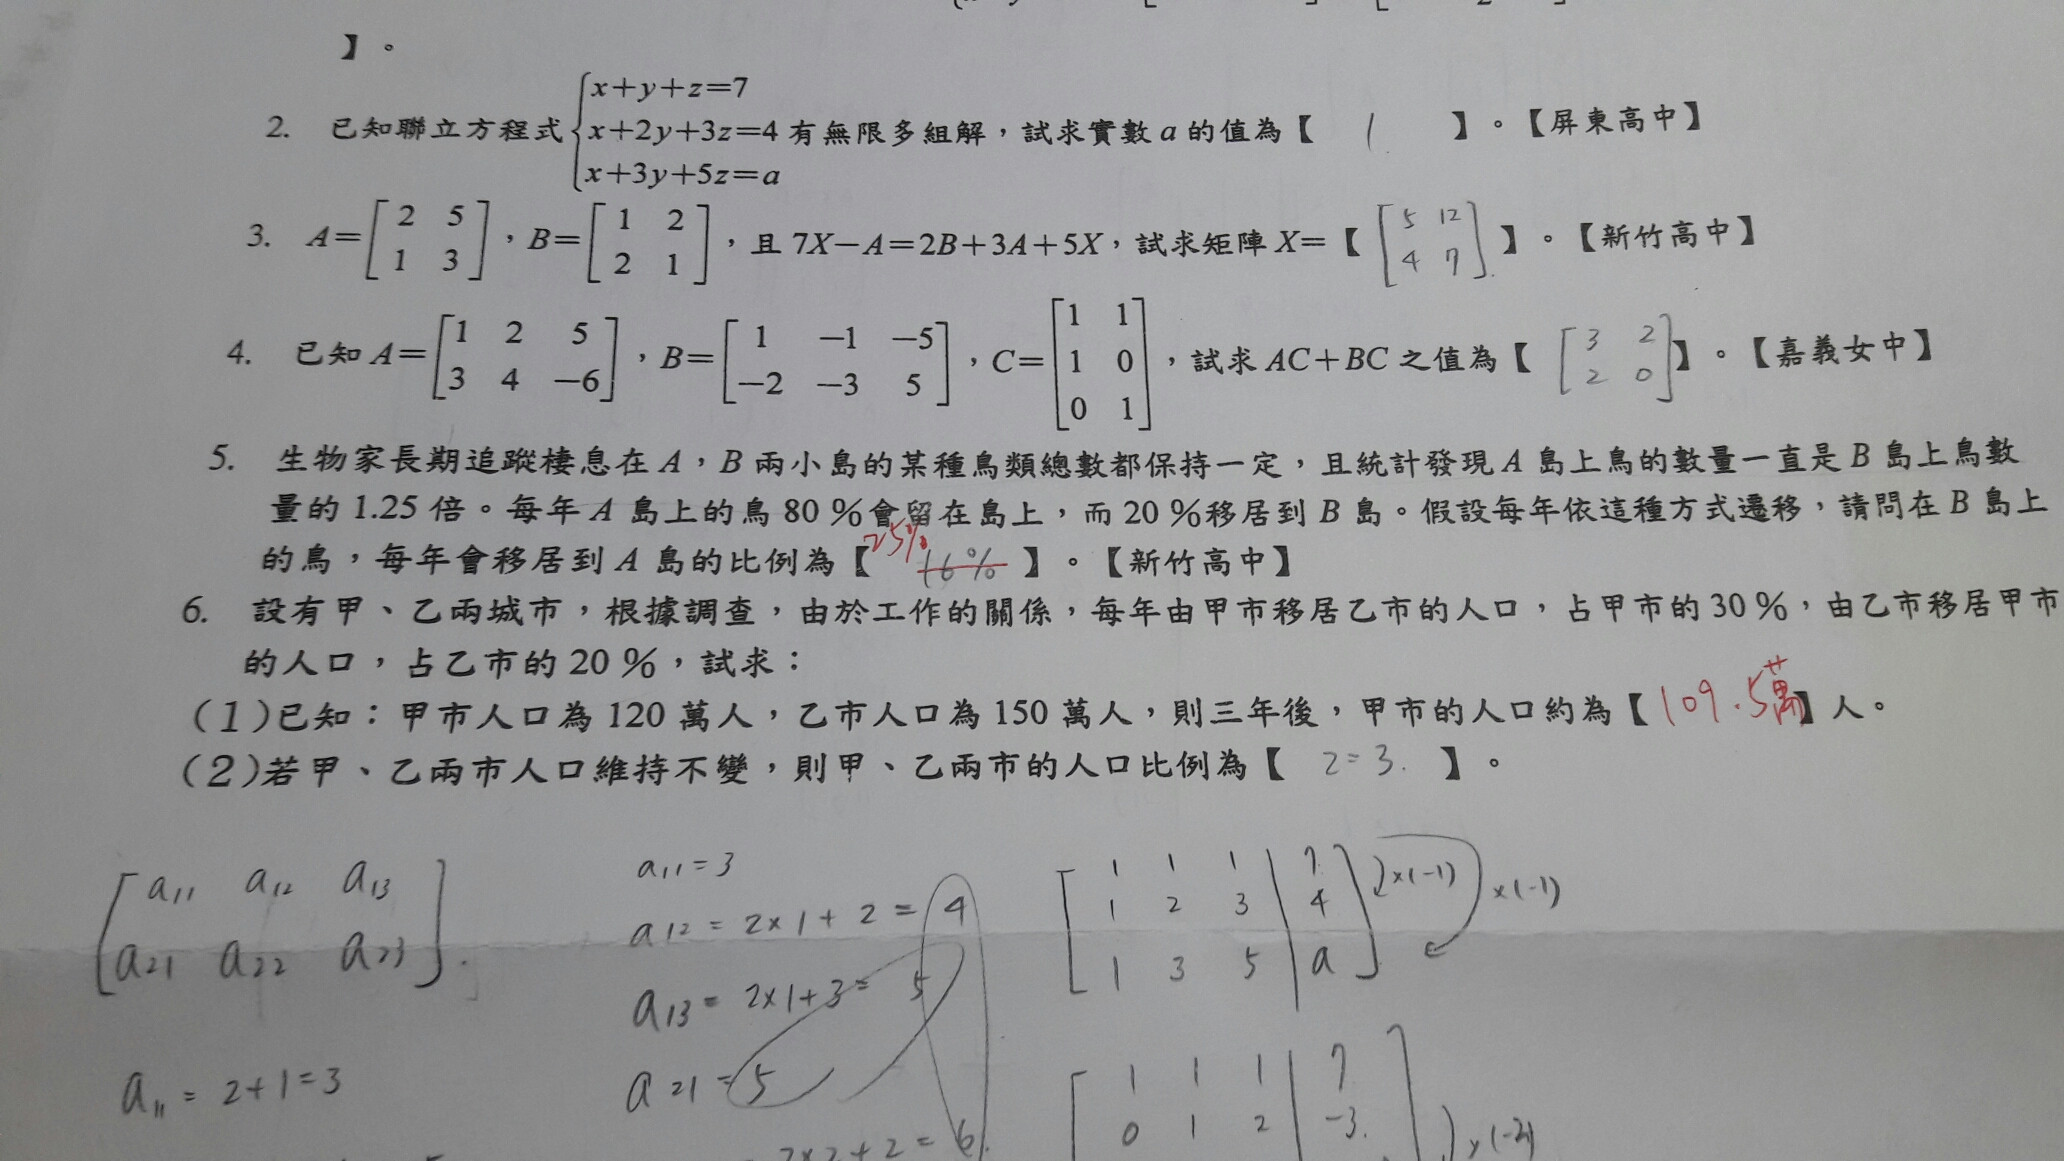 】。
2. 已知聯立方程式 { x+y+z=7
x+2y+3z=4 有無限多組解，試求實數 a 的值為【 1 】。【屏東高中】
x+3y+5z=a
3. A=[2 5; 1 3]，B=[1 2; 2 1]，且 7X－A=2B+3A+5X，試求矩陣 X=【 [5 12; 4 7] 】。【新竹高中】
4. 已知 A=[1 2 5; 3 4 －6]，B=[1 －1 －5; －2 －3 5]，C=[1 1; 1 0; 0 1]，試求 AC+BC 之值為【 [3 2; 2 0] 】。【嘉義女中】
5. 生物家長期追蹤棲息在 A，B 兩小島的某種鳥類總數都保持一定，且統計發現 A 島上鳥的數量一直是 B 島上鳥數
量的 1.25 倍。每年 A 島上的鳥 80 %會留在島上，而 20 %移居到 B 島。假設每年依這種方式遷移，請問在 B 島上
的鳥，每年會移居到 A 島的比例為【 25% 16% 】。【新竹高中】
6. 設有甲、乙兩城市，根據調查，由於工作的關係，每年由甲市移居乙市的人口，占甲市的 30 %，由乙市移居甲市
的人口，占乙市的 20 %，試求：
(1)已知：甲市人口為 120 萬人，乙市人口為 150 萬人，則三年後，甲市的人口約為【109.5萬】人。
(2)若甲、乙兩市人口維持不變，則甲、乙兩市的人口比例為【 2=3. 】。
[a11 a12 a13
a21 a22 a23].
a11 = 2+1=3
a11=3
a12 = 2×1+2=4
a13= 2×1+3= 5
a21=5
2×2+2=6
[1 1 1 | 7
1 2 3 | 4
1 3 5 | a] ×(-1) ×(-1)
[1 1 1 | 7
0 1 2 | -3. ×(-2)